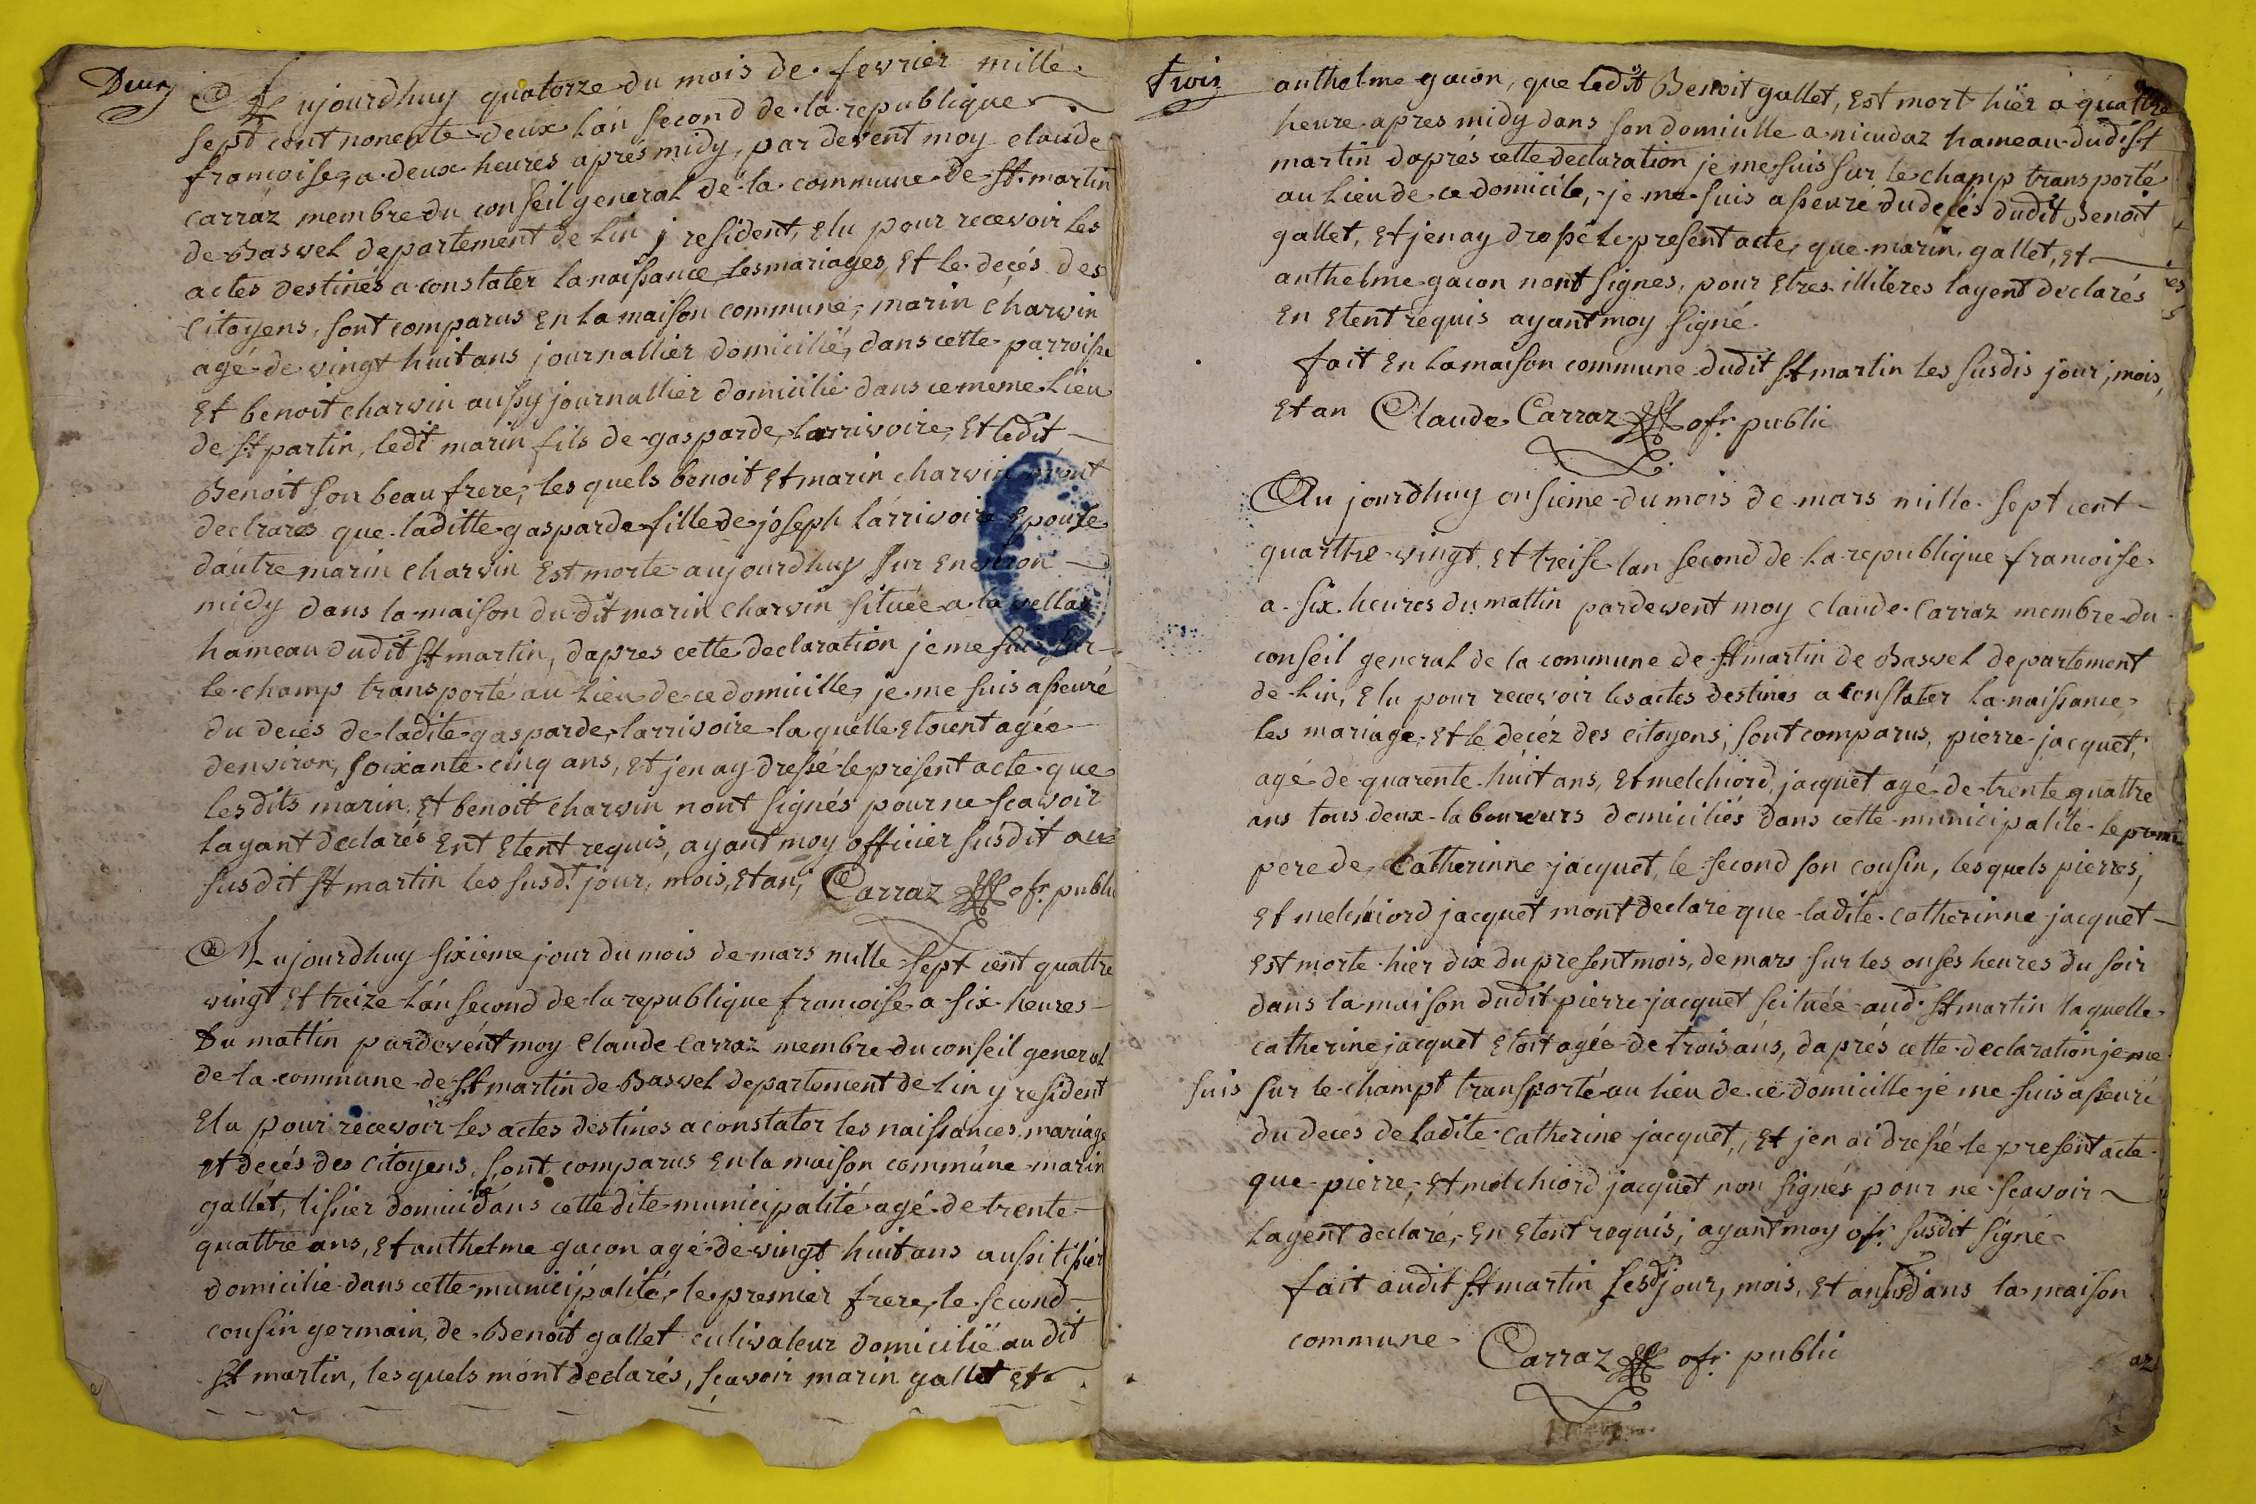 Deux
Aujourdhuy quatorze du mois de fevrier mille
sept cent nonente deux lán second de la republique
francoise, a deux heures aprés midy, par devent moy claude
carraz membre du conseil general de la commune de St. martin
de Bavel departement de lin y resident, Elu pour recevoir les
actes destinés a constater la naissance, les mariages, Et le decés des
Citoyens, sont comparus En la maison commune, marin charvin
agé de vingt huit ans journallier domicilié, dans cette parroisse
Et benoit charvin aussy journallier domicilié dans ce meme lieu
de St partin, ledt marin fils de gasparde larrivoire, Et ledit
Benoit son beau frere, les quels benoit Et marin charvin mont
declrarés que laditte gasparde fille de joseph lárrivoire Epouse
dáutre marin charvin Est morte aujourdhuy sur Environ
midy dans la maison du dit marin charvin située a la vellaz
hameau dudit St martin, dapres cette declaration je me suis sur
le champ transporté au lieu de ce domicille, je me suis asseuré
du decés de ladite gasparde larrivoire la quelle Etoient agée
denviron, soixante cinq ans, Et jen ay dressé le present acte que
lesdits marin Et benoit charvin nont signés pour ne scavoir
layant declarés Ent Etent requis, ayant moy officier susdit au
susdit St martin les susdt. jour, mois, Et an, Carraz ofr. public
Aujourdhuy sixieme jour du mois de mars mille sept cent quattre
vingt Et treize lán second de la republique francoise a six heures
Du mattin pardevént moy Claude Carraz membre du conseil general
de la commune de St martin de Bavel departement de lin y resident
Elu pour recevoir les actes destines a constater les naissances, mariage
et decés des Citoyens, sont comparus En la maison commune marin
gallét, tissier domicilié dans cette dite municipalité agé de trente
quattre ans, Et anthelme gacon agé de vingt huit ans aussi tissier
domicilié dans cette municipalité, le premier frere, le second
cousin germain, de Benoit gallet culivateur domicilié au dit
St martin, lesquels mónt declarés, scavoir marin gallet Et
trois
anthelme gacon, que ledit Benoit gallet, Est mort hïer a quattre
heure apres midy dans son domicille a nicudaz hameau dudit St
martin daprés cette declaration je me suis sur le champ transporté
au lieu de ce domicile, je me suis asseuré du decés dudit Benoit
gallet, Et jen ay drossé le present acte, que marin gallet, Et
anthelme gacon nont signes, pour Etres illiteres layent declarés
En Etent requis ayant moy signé.
fait En la maison commune dudit St martin les susdis jour, mois,
Et an Claude Carraz ofr. public
Au jourdhuy onsieme du mois de mars mille sept cent
quarttre vingt Et treise lan second de la republique francoise
a six heures du mattin pardevent moy claude Carraz membre du
conseil general de la commune de St martin de Bavel departement
de lin, Elu pour recevoir les actes destinés a constater la naissance
les mariage, Et le decéz des citoyens, sont comparus, pierre jacquet,
agé de quarente huit ans, Et melchiord, jacquet agé de trente quattre
ans tous deux laboureurs domiciliés dans cette municipalité le premi
pere de, Catherinne jacquet, le second son cousin, les quels pierres,
Et melchiord jacquet mont declaré que ladite catherinne jacquet
Est morte hier dix du present mois, de mars sur les onses heures du soir
dans la maison dudit pierre jacquet scituée aud. St martin laquelle
catherine jacquet Etoit agée de trois áns, daprés cette declaration je me
suis sur le champt transporté au lieu de ce domicille je me suis asseuré
du deces de ladite catherine jacquet, Et jen ai dressé le present acte
que pierre, Et melchiord jacquet non signés pour ne scavoir
layent declaré, En Etent requis, ayant moy ofr. susdit signé
fait audit St martin lesd. jour, mois, Et an susd dans la maison
commune Carraz ofr public